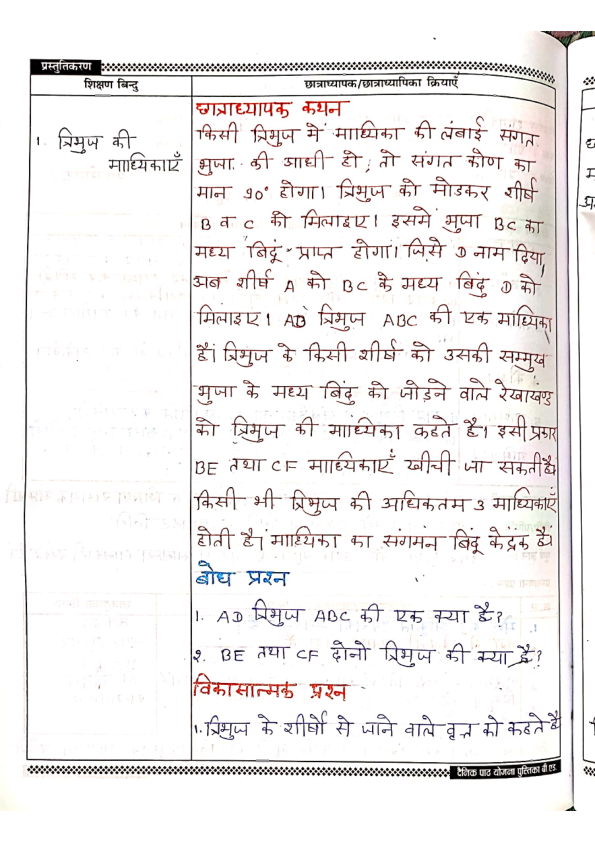 प्रस्तुतिकरण
शिक्षण बिन्दु
छात्राध्यापक/छात्राध्यापिका क्रियाएँ
1. त्रिभुज की
माध्यिकाएँ
छात्राध्यापक कथन
किसी त्रिभुज में माध्यिका की लंबाई संगत
भुजा की आधी हो, तो संगत कोण का
मान 90° होगा। त्रिभुज को मोडकर शीर्ष
B व C को मिलाइए। इसमें भुजा BC का
मध्य बिंदु प्राप्त होगा। जिसे D नाम दिया,
अब शीर्ष A को BC के मध्य बिंदु D को
मिलाइए। AD त्रिभुज ABC की एक माध्यिका
है। त्रिभुज के किसी शीर्ष को उसकी सम्मुख
भुजा के मध्य बिंदु को जोड़ने वाले रेखाखण्ड
को त्रिभुज की माध्यिका कहते है। इसी प्रकार
BE तथा CF माध्यिकाएँ खीची जा सकती है।
किसी भी त्रिभुज की अधिकतम 3 माध्यिकाएँ
होती है। माध्यिका का संगमन बिंदू केंद्रक है।
बोध प्रश्न
1. AD त्रिभुज ABC की एक क्या है?
2. BE तथा CF दोनो त्रिभुज की क्या है?
विकासात्मक प्रश्न
1. त्रिभुज के शीर्षो से जाने वाले वृत्त को कहते है
दैनिक पाठ योजना पुस्तिका बी एड.